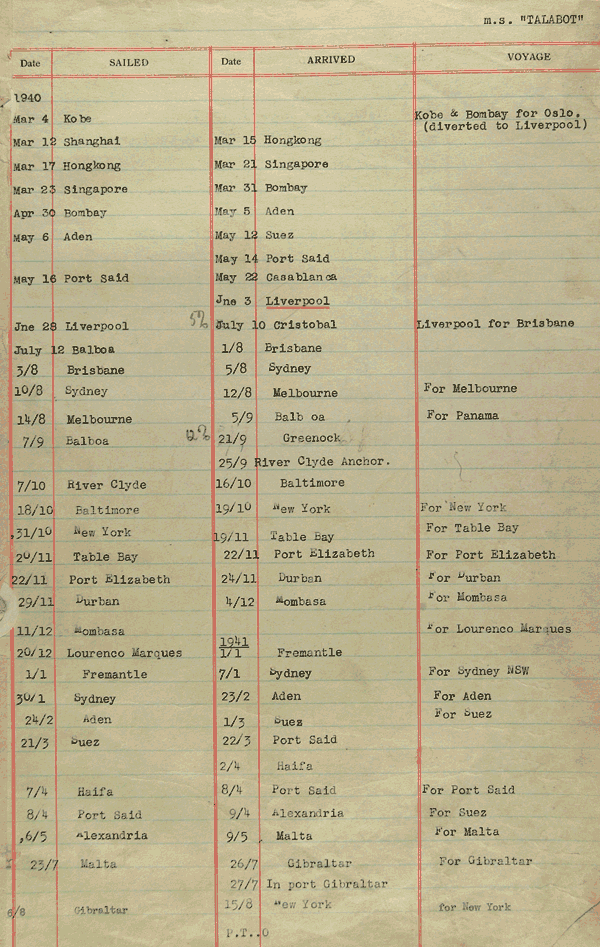 m.s. "TALABOT"
Date SAILED Date ARRIVED VOYAGE
1940
Mar 4 Kobe Kobe & Bombay for Oslo.
(diverted to Liverpool)
Mar 12 Shanghai Mar 15 Hongkong
Mar 17 Hongkong Mar 21 Singapore
Mar 23 Singapore Mar 31 Bombay
Apr 30 Bombay May 5 Aden
May 6 Aden May 12 Suez
May 14 Port Said
May 16 Port Said May 22 Casablanca
Jne 3 Liverpool
Jne 28 Liverpool July 10 Cristobal Liverpool for Brisbane
July 12 Balboa 1/8 Brisbane
3/8 Brisbane 5/8 Sydney
10/8 Sydney 12/8 Melbourne For Melbourne
14/8 Melbourne 5/9 Balb oa For Panama
7/9 Balboa 21/9 Greenock
25/9 River Clyde Anchor.
7/10 River Clyde 16/10 Baltimore
18/10 Baltimore 19/10 New York For New York
31/10 New York 19/11 Table Bay For Table Bay
20/11 Table Bay 22/11 Port Elizabeth For Port Elizabeth
22/11 Port Elizabeth 24/11 Durban For Durban
29/11 Durban 4/12 Mombasa For Mombasa
11/12 Mombasa For Lourenco Marques
1941
20/12 Lourenco Marques 1/1 Fremantle
1/1 Fremantle 7/1 Sydney For Sydney NSW
30/1 Sydney 23/2 Aden For Aden
24/2 Aden 1/3 Suez For Suez
21/3 Suez 22/3 Port Said
2/4 Haifa
7/4 Haifa 8/4 Port Said For Port Said
8/4 Port Said 9/4 Alexandria For Suez
6/5 Alexandria 9/5 Malta For Malta
23/7 Malta 26/7 Gibraltar For Gibraltar
27/7 In port Gibraltar
6/8 Gibraltar 15/8 New York for New York
P.T..O